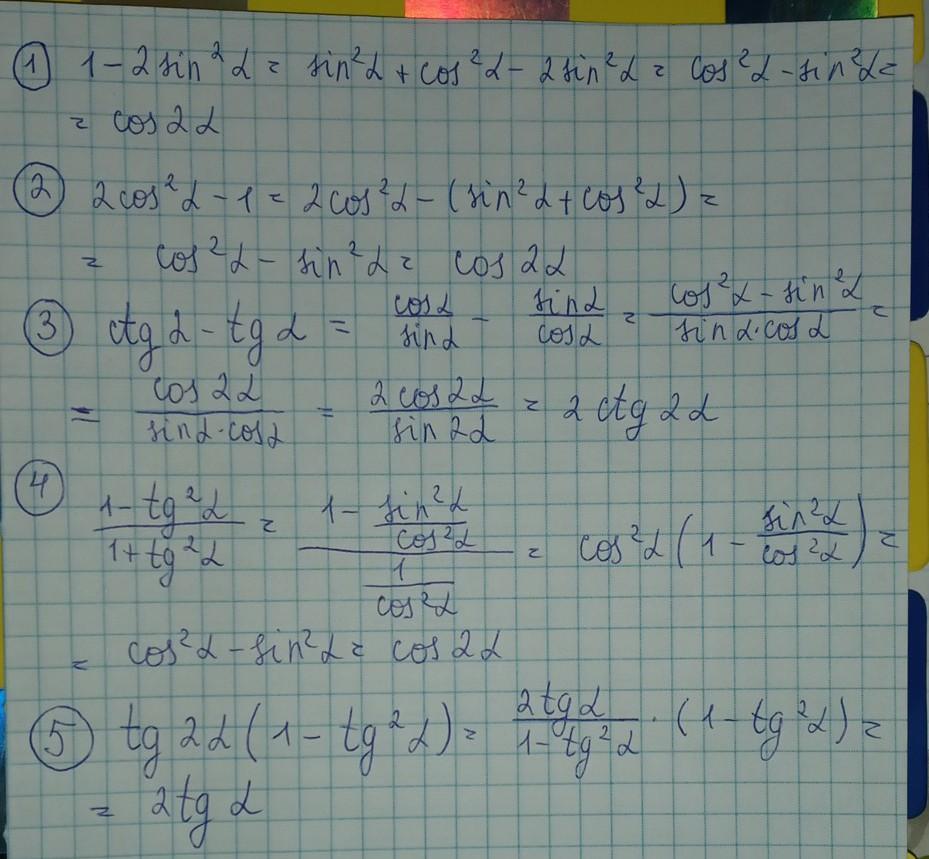 ① 1 - 2 sin² α = sin² α + cos² α - 2 sin² α = cos² α - sin² α =
= cos 2α
② 2 cos² α - 1 = 2 cos² α - (sin² α + cos² α) =
= cos² α - sin² α = cos 2α
③ ctg α - tg α = cos α / sin α - sin α / cos α = (cos² α - sin² α) / (sin α · cos α) =
= cos 2α / (sin α · cos α) = 2 cos 2α / sin 2α = 2 ctg 2α
④ (1 - tg² α) / (1 + tg² α) = (1 - sin² α / cos² α) / (1 / cos² α) = cos² α (1 - sin² α / cos² α) =
= cos² α - sin² α = cos 2α
⑤ tg 2α (1 - tg² α) = 2 tg α / (1 - tg² α) · (1 - tg² α) =
= 2 tg α